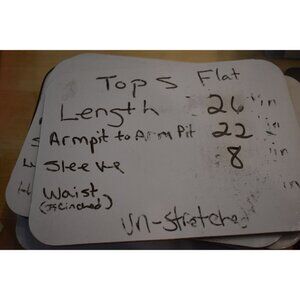 Tops Flat
Length 26 in
Armpit to Arm Pit 22 in
Sleeve 8
Waist in
(If Cinched)
Un-Stretched